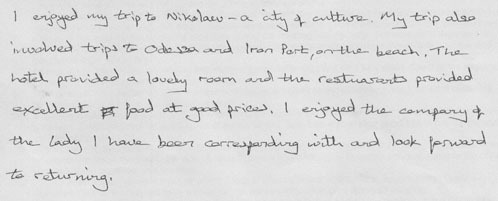 I enjoyed my trip to Nikolaev - a city of culture. My trip also
involved trips to Odessa and Iron Port, on the beach. The
hotel provided a lovely room and the restuarants provided
excellent food at good prices. I enjoyed the company of
the lady I have been corresponding with and look forward
to returning.